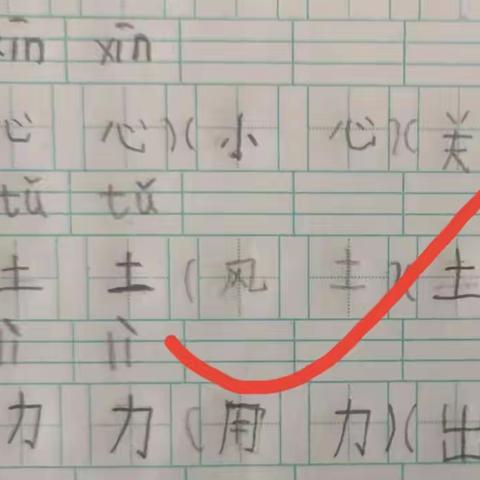 xīn xīn
心 心)(小 心)(关
tǔ tǔ
土 土(风 土)(土
lì lì
力 力(用 力)(出